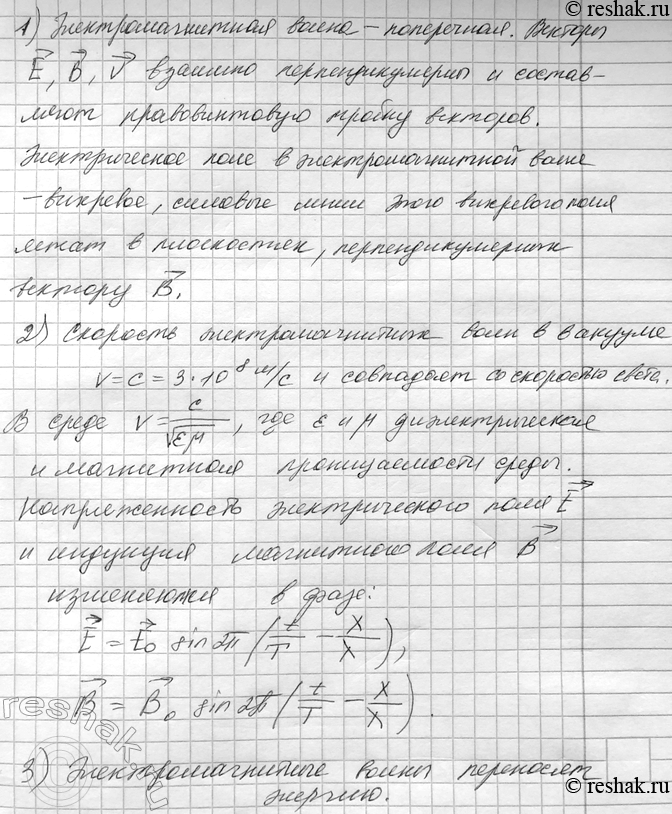 reshak.ru
1) Электромагнитная волна – поперечная. Векторы
E⃗, B⃗, V⃗ взаимно перпендикулярны и состав-
ляют правовинтовую тройку векторов.
Электрическое поле в электромагнитной волне
– вихревое, силовые линии этого вихревого поля
лежат в плоскостях, перпендикулярных
вектору B⃗.
2) Скорость электромагнитных волн в вакууме
v = c = 3·10⁸ м/с и совпадает со скоростью света.
В среде v = c/√(εμ), где ε и μ диэлектрическая
и магнитная проницаемости среды.
Напряженность электрического поля E⃗
и индукция магнитного поля B⃗
изменяются в фазе:
E⃗ = E⃗₀ sin 2π (t/T – x/λ),
B⃗ = B⃗₀ sin 2π (t/T – x/λ).
reshak.ru
3) Электромагнитные волны переносят
энергию.
reshak.ru